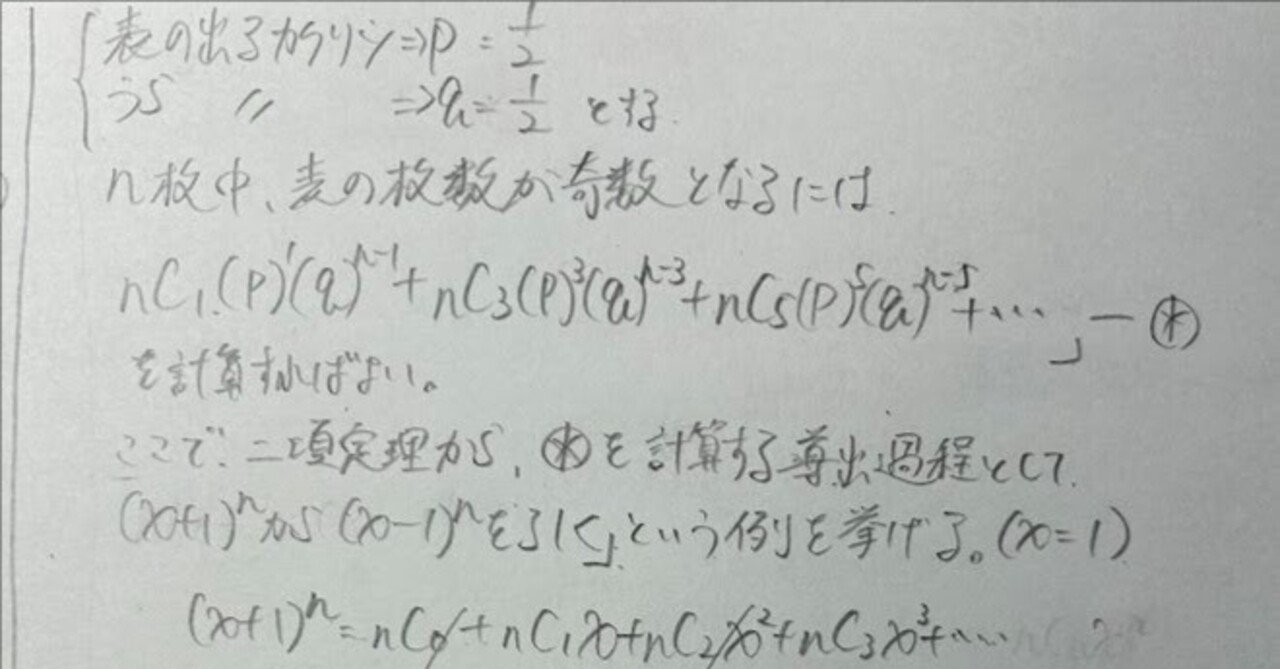 表の出るカクリツ⇒p = 1/2
うら 〃 ⇒q = 1/2 とする
n枚中、表の枚数が奇数となるには
nC₁(p)¹(q)ⁿ⁻¹+nC₃(p)³(q)ⁿ⁻³+nC₅(p)⁵(q)ⁿ⁻⁵+… 」―㊍
を計算すればよい。
ここで、二項定理から、を計算する導出過程として
(x+1)ⁿから(x-1)ⁿを引く」という例を挙げる。(x=1)
(x+1)ⁿ=nC₀+nC₁x+nC₂x²+nC₃x³+…